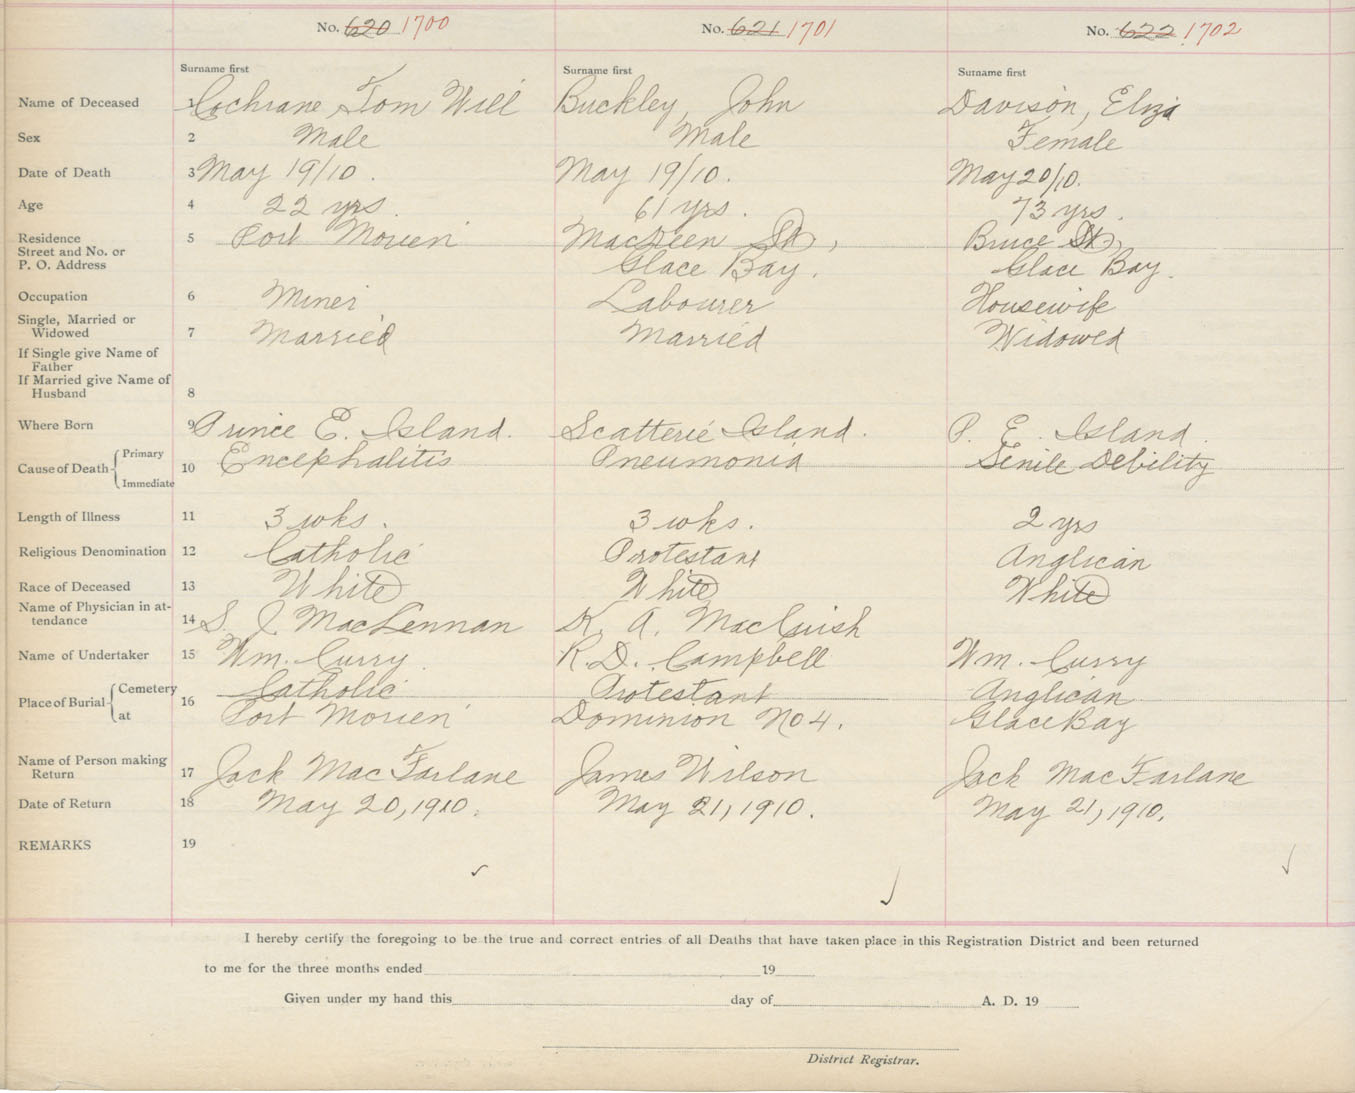 No. 620 1700 No. 621 1701 No. 622 1702
Surname first Surname first Surname first
Name of Deceased 1 Cochrane, Tom Will Buckley, John Davison, Eliza
Sex 2 Male Male Female
Date of Death 3 May 19/10. May 19/10. May 20/10.
Age 4 22 yrs. 61 yrs. 73 yrs.
Residence 5 Port Morien MacKeen St, Bruce St,
Street and No. or
P. O. Address Glace Bay. Glace Bay.
Occupation 6 Miner Labourer Housewife
Single, Married or
Widowed 7 Married Married Widowed
If Single give Name of
Father
If Married give Name of
Husband 8
Where Born 9 Prince E. Island. Scatterie Island. P. E. Island.
Cause of Death Primary 10 Encephalitis Pneumonia Senile Debility
Immediate
Length of Illness 11 3 wks. 3 wks. 2 yrs
Religious Denomination 12 Catholic Protestant Anglican
Race of Deceased 13 White White White
Name of Physician in at-
tendance 14 S. J. MacLennan K. A. MacCuish
Name of Undertaker 15 Wm. Curry. R. D. Campbell Wm. Curry
Place of Burial Cemetery 16 Catholic Protestant Anglican
at Port Morien Dominion No 4. Glace Bay
Name of Person making
Return 17 Jack MacFarlane James Wilson Jack MacFarlane
Date of Return 18 May 20, 1910. May 21, 1910. May 21, 1910.
REMARKS 19
I hereby certify the foregoing to be the true and correct entries of all Deaths that have taken place in this Registration District and been returned
to me for the three months ended 19
Given under my hand this day of A. D. 19
District Registrar.